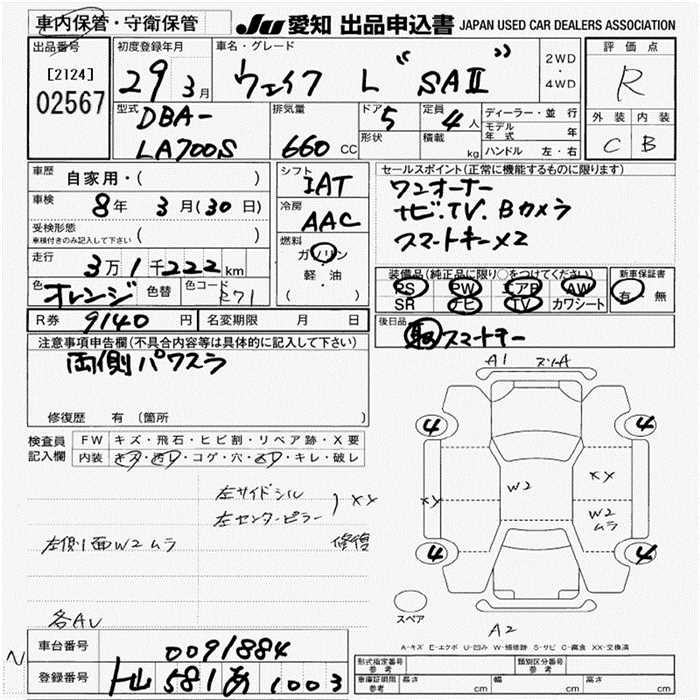 車内保管・守衛保管
JU 愛知 出品申込書 JAPAN USED CAR DEALERS ASSOCIATION
出品番号 初度登録年月 車名・グレード 2WD・4WD 評価点
[2124] 02567 29 3月 ウェイク L "SAⅡ" R
型式 排気量 ドア 定員 ディーラー・並行 外装 内装
DBA-LA700S 660 CC 5 4人 モデル年式 年 C B
形状 積載 kg ハンドル 左・右
車歴 自家用・( )
車検 8年 3月(30日)
受検形態 車検付きのみ記入して下さい ( )
走行 3万1千222km
色 オレンジ 色替 色コード R71
R券 9140円 名変期限 月 日
シフト IAT
冷房 AAC
燃料 ガソリン・軽・油 ( )
セールスポイント(正常に機能するものに限ります)
ワンオーナー
ナビ.TV.Bカメラ
スマートキー×2
装備品(純正品に限り○をつけてください) 新車保証書
PS PW エアB AW 有・無
SR ナビ TV カワシート
後日品 取 スマートキー
注意事項申告欄(不具合内容等は具体的に記入して下さい)
両側パワスラ
修復歴 有 (箇所
検査員記入欄 FW キズ・飛石・ヒビ割・リペア跡・X要
内装 キズ・汚レ・コゲ・穴・スレ・キレ・破レ
左サイドシル
左センターピラー ) XX
修復
左側面W2ムラ
各AU
A1
4 4
W2 XX
XX
W2ムラ
4 4
スペア
A2
A-キズ E-エクボ U-凹み W-補修跡 S-サビ C-腐食 XX-交換済
車台番号 0091884
登録番号 581 あ 1003
形式指定番号 参考 類別区分番号 参考
車庫証明期限 参考 長さ cm 幅 cm 高さ cm